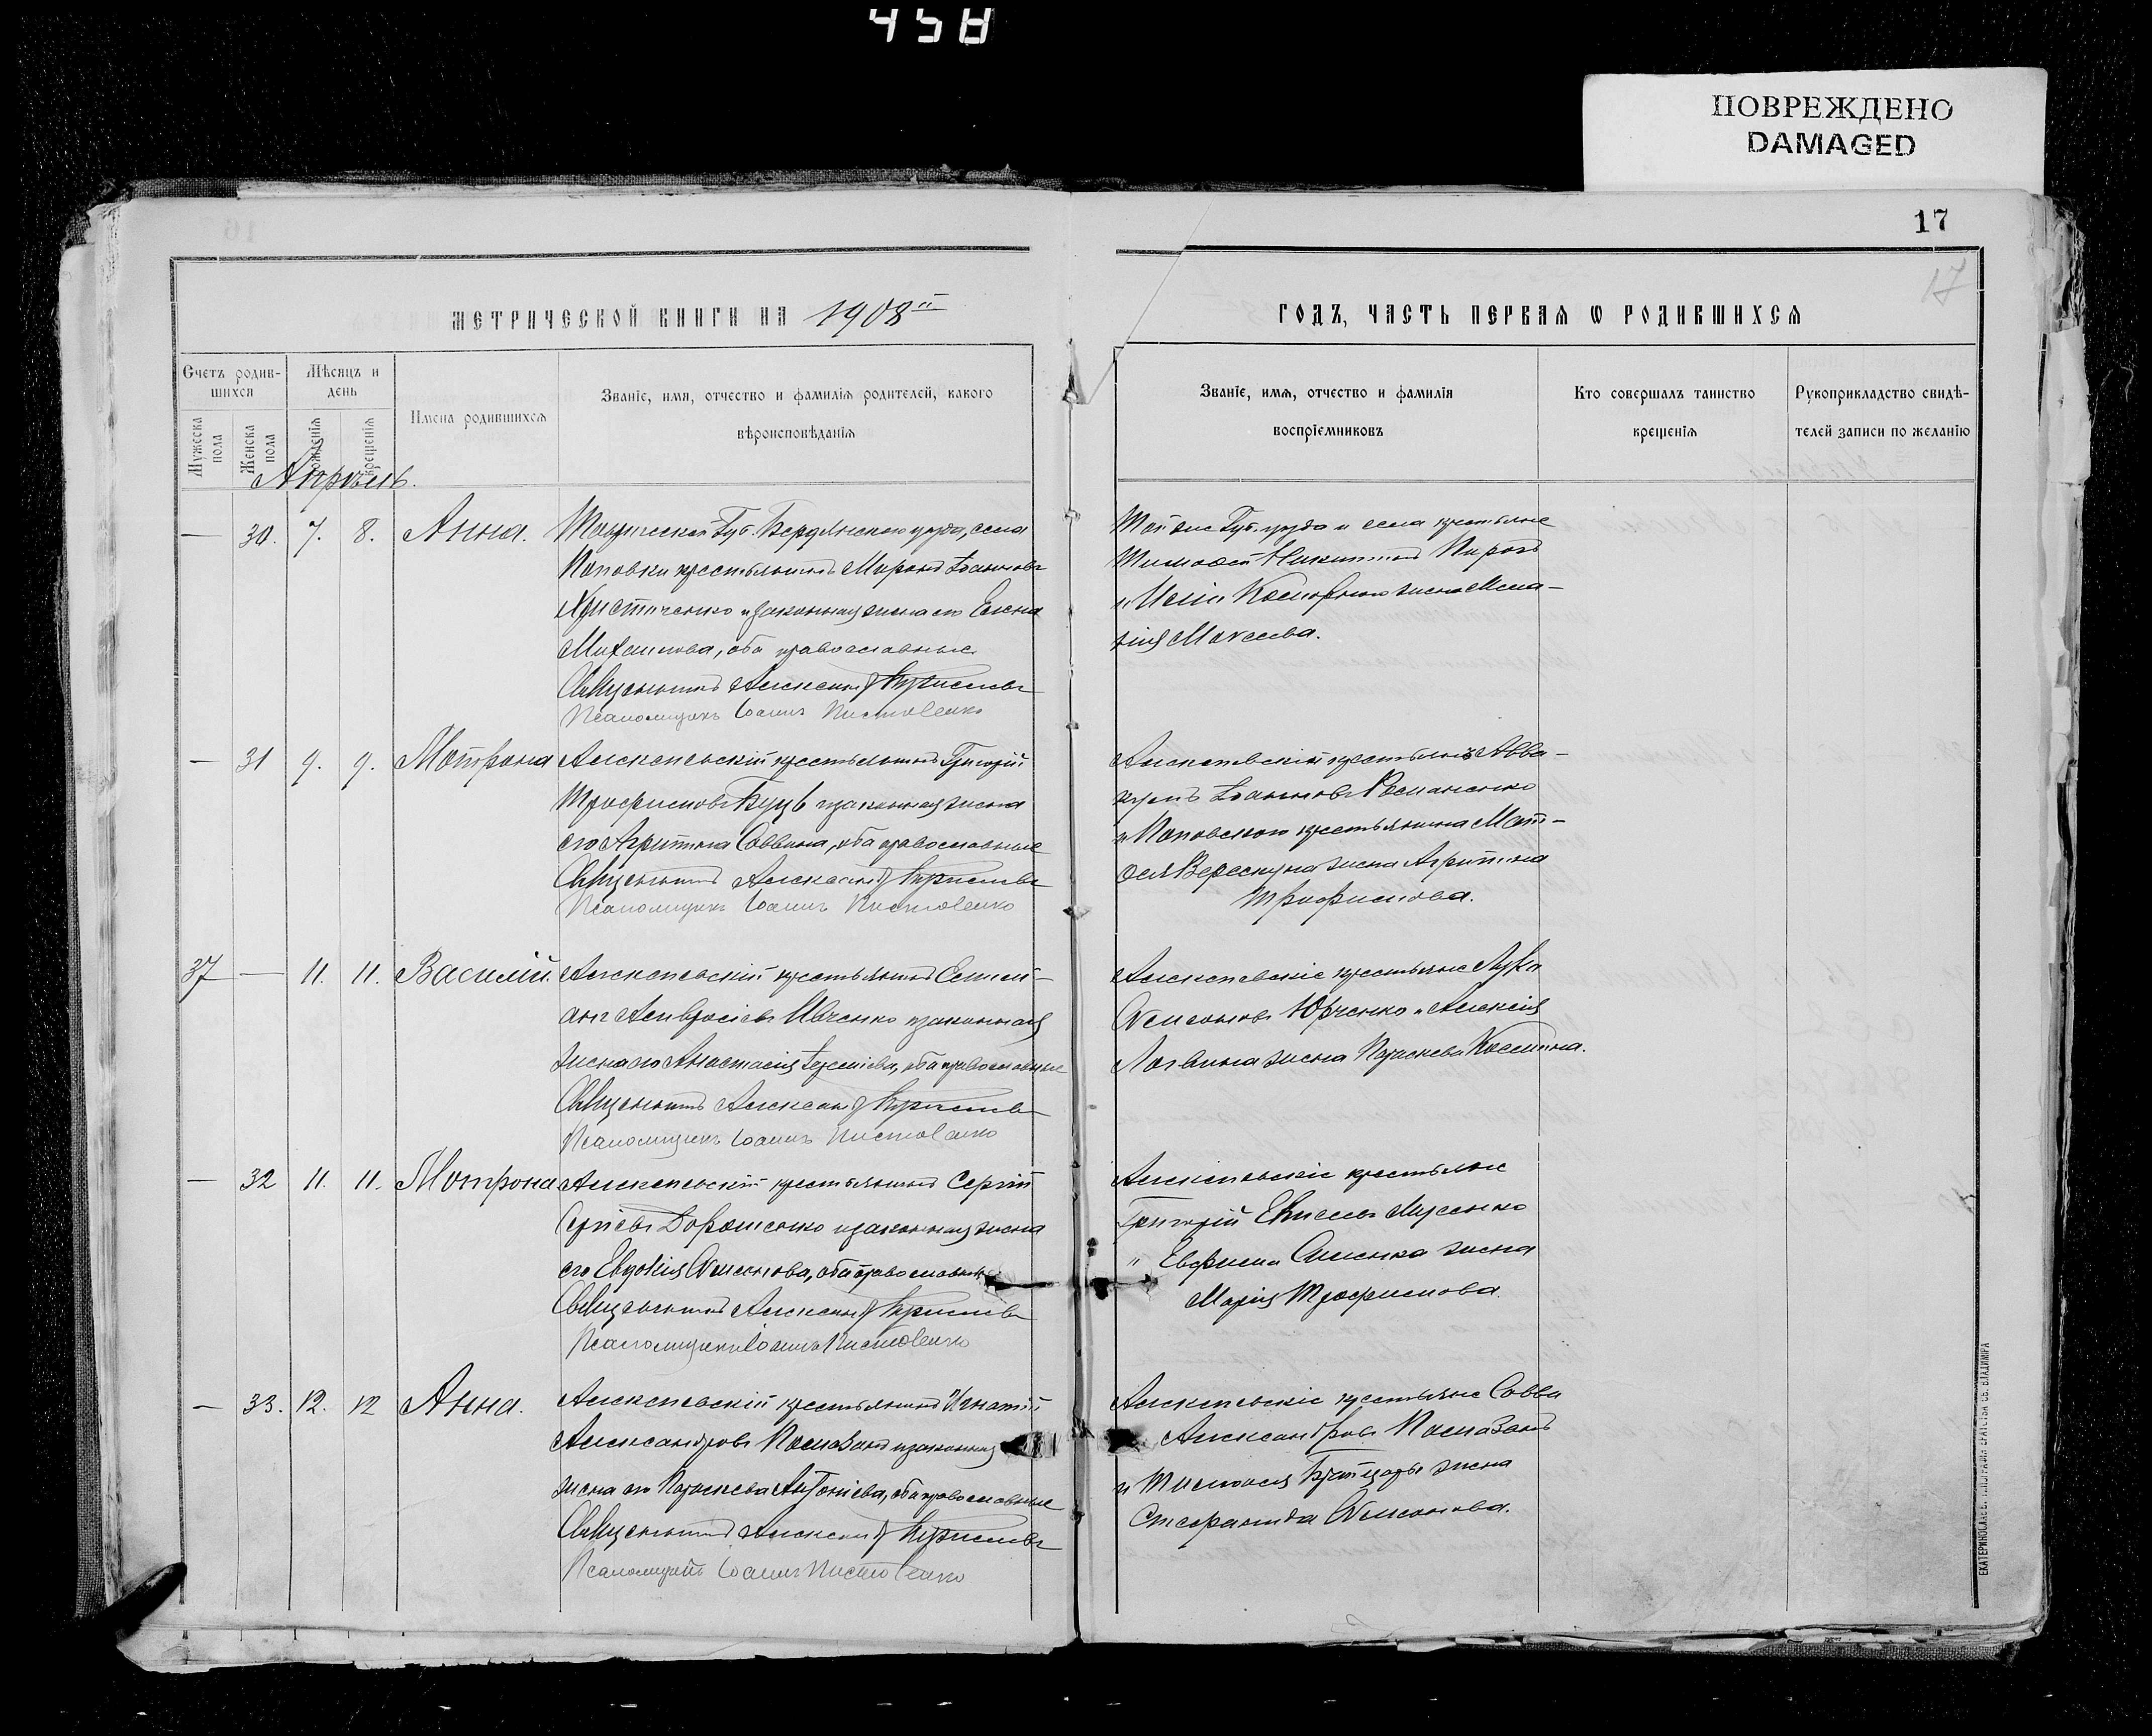 458
ПОВРЕЖДЕНО
DAMAGED
17
17
МЕТРИЧЕСКОЙ КНИГИ НА 1908
ГОДЪ, ЧАСТЬ ПЕРВАЯ Ѡ РОДИВШИХСЯ
Счетъ родив-
шихся
Мужеска пола
Женска пола
Мѣсяцъ и
день
рожденія
крещенія
Имена родившихся
Званіе, имя, отчество и фамилія родителей, какого
вѣроисповѣданія
Званіе, имя, отчество и фамилія
воспріемниковъ
Кто совершалъ таинство
крещенія
Рукоприкладство свидѣ-
телей записи по желанію
Апрѣль.
— 30. 7. 8. Анна. Таврической Губ. Бердянскаго уѣзда, села
Поповки крестьянинъ Миронъ Іоанновъ
Христиченко и законная жена его Елена
Михаилова, оба православные.
Священникъ Александръ
Псаломщикъ Іоаннъ
Той же Губ. уѣзда и села крестьяне
Тимоѳей Никитинъ Пирогъ
и жена
Мокеева.
— 31 9. 9. Мотрона Алексѣевскій крестьянинъ Григорій
Трофимовъ Буцъ и законная жена
его Агриппина Саввина, оба православные
Священникъ Александръ
Псаломщикъ Іоаннъ
Алексѣевскій крестьянинъ Авва-
кумъ Іоанновъ Романенко
и Поповского крестьянина Мат-
ѳея Верескуна жена Агрипина
Трофимова.
37 — 11. 11. Василій. Алексѣевскій крестьянинъ Емели-
анъ Амвросіевъ Ивченко и законная
жена его Анастасія Іереміева, оба православные
Священникъ Александръ
Псаломщикъ Іоаннъ
Алексѣевскіе крестьяне Лука
Симеоновъ Юрченко и Алексія
Логвина жена Параскева Космина.
— 32 11. 11. Мотрона Алексѣевскій крестьянинъ Сергій
Сергіевъ Дорошенко и законная жена
его Евдокія Симеонова, оба православные
Священникъ Александръ
Псаломщикъ Іоаннъ
Алексѣевскіе крестьяне
Григорій
и Евфима жена
Марія Трофимова.
— 33. 12. 12 Анна. Алексѣевскій крестьянинъ Игнатій
Александровъ и законная
жена его Параскева Антоніева, оба православные
Священникъ Александръ
Псаломщикъ Іоаннъ
Алексѣевскіе крестьяне Савва
Александровъ
и Тимоѳея жена
Стефанида Симеонова.